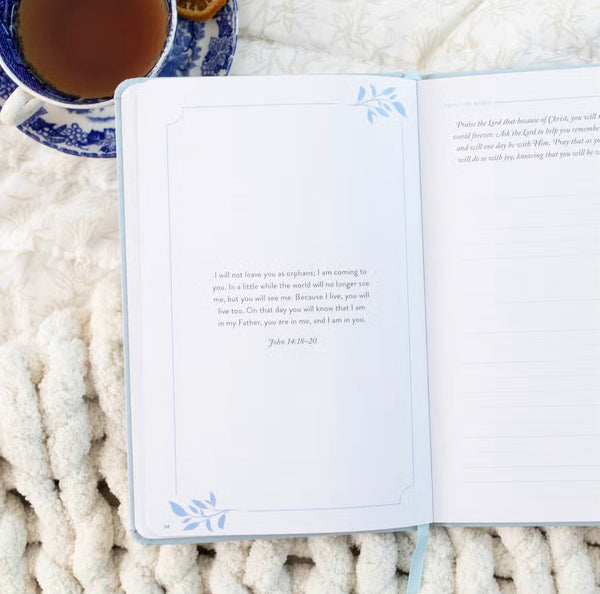 I will not leave you as orphans; I am coming to
you. In a little while the world will no longer see
me, but you will see me. Because I live, you will
live too. On that day you will know that I am
in my Father, you are in me, and I am in you.
John 14:18–20
Praise the Lord that because of Christ, you will
world forever. Ask the Lord to help you remember
and will one day be with Him. Pray that as you
will do so with joy, knowing that you will be